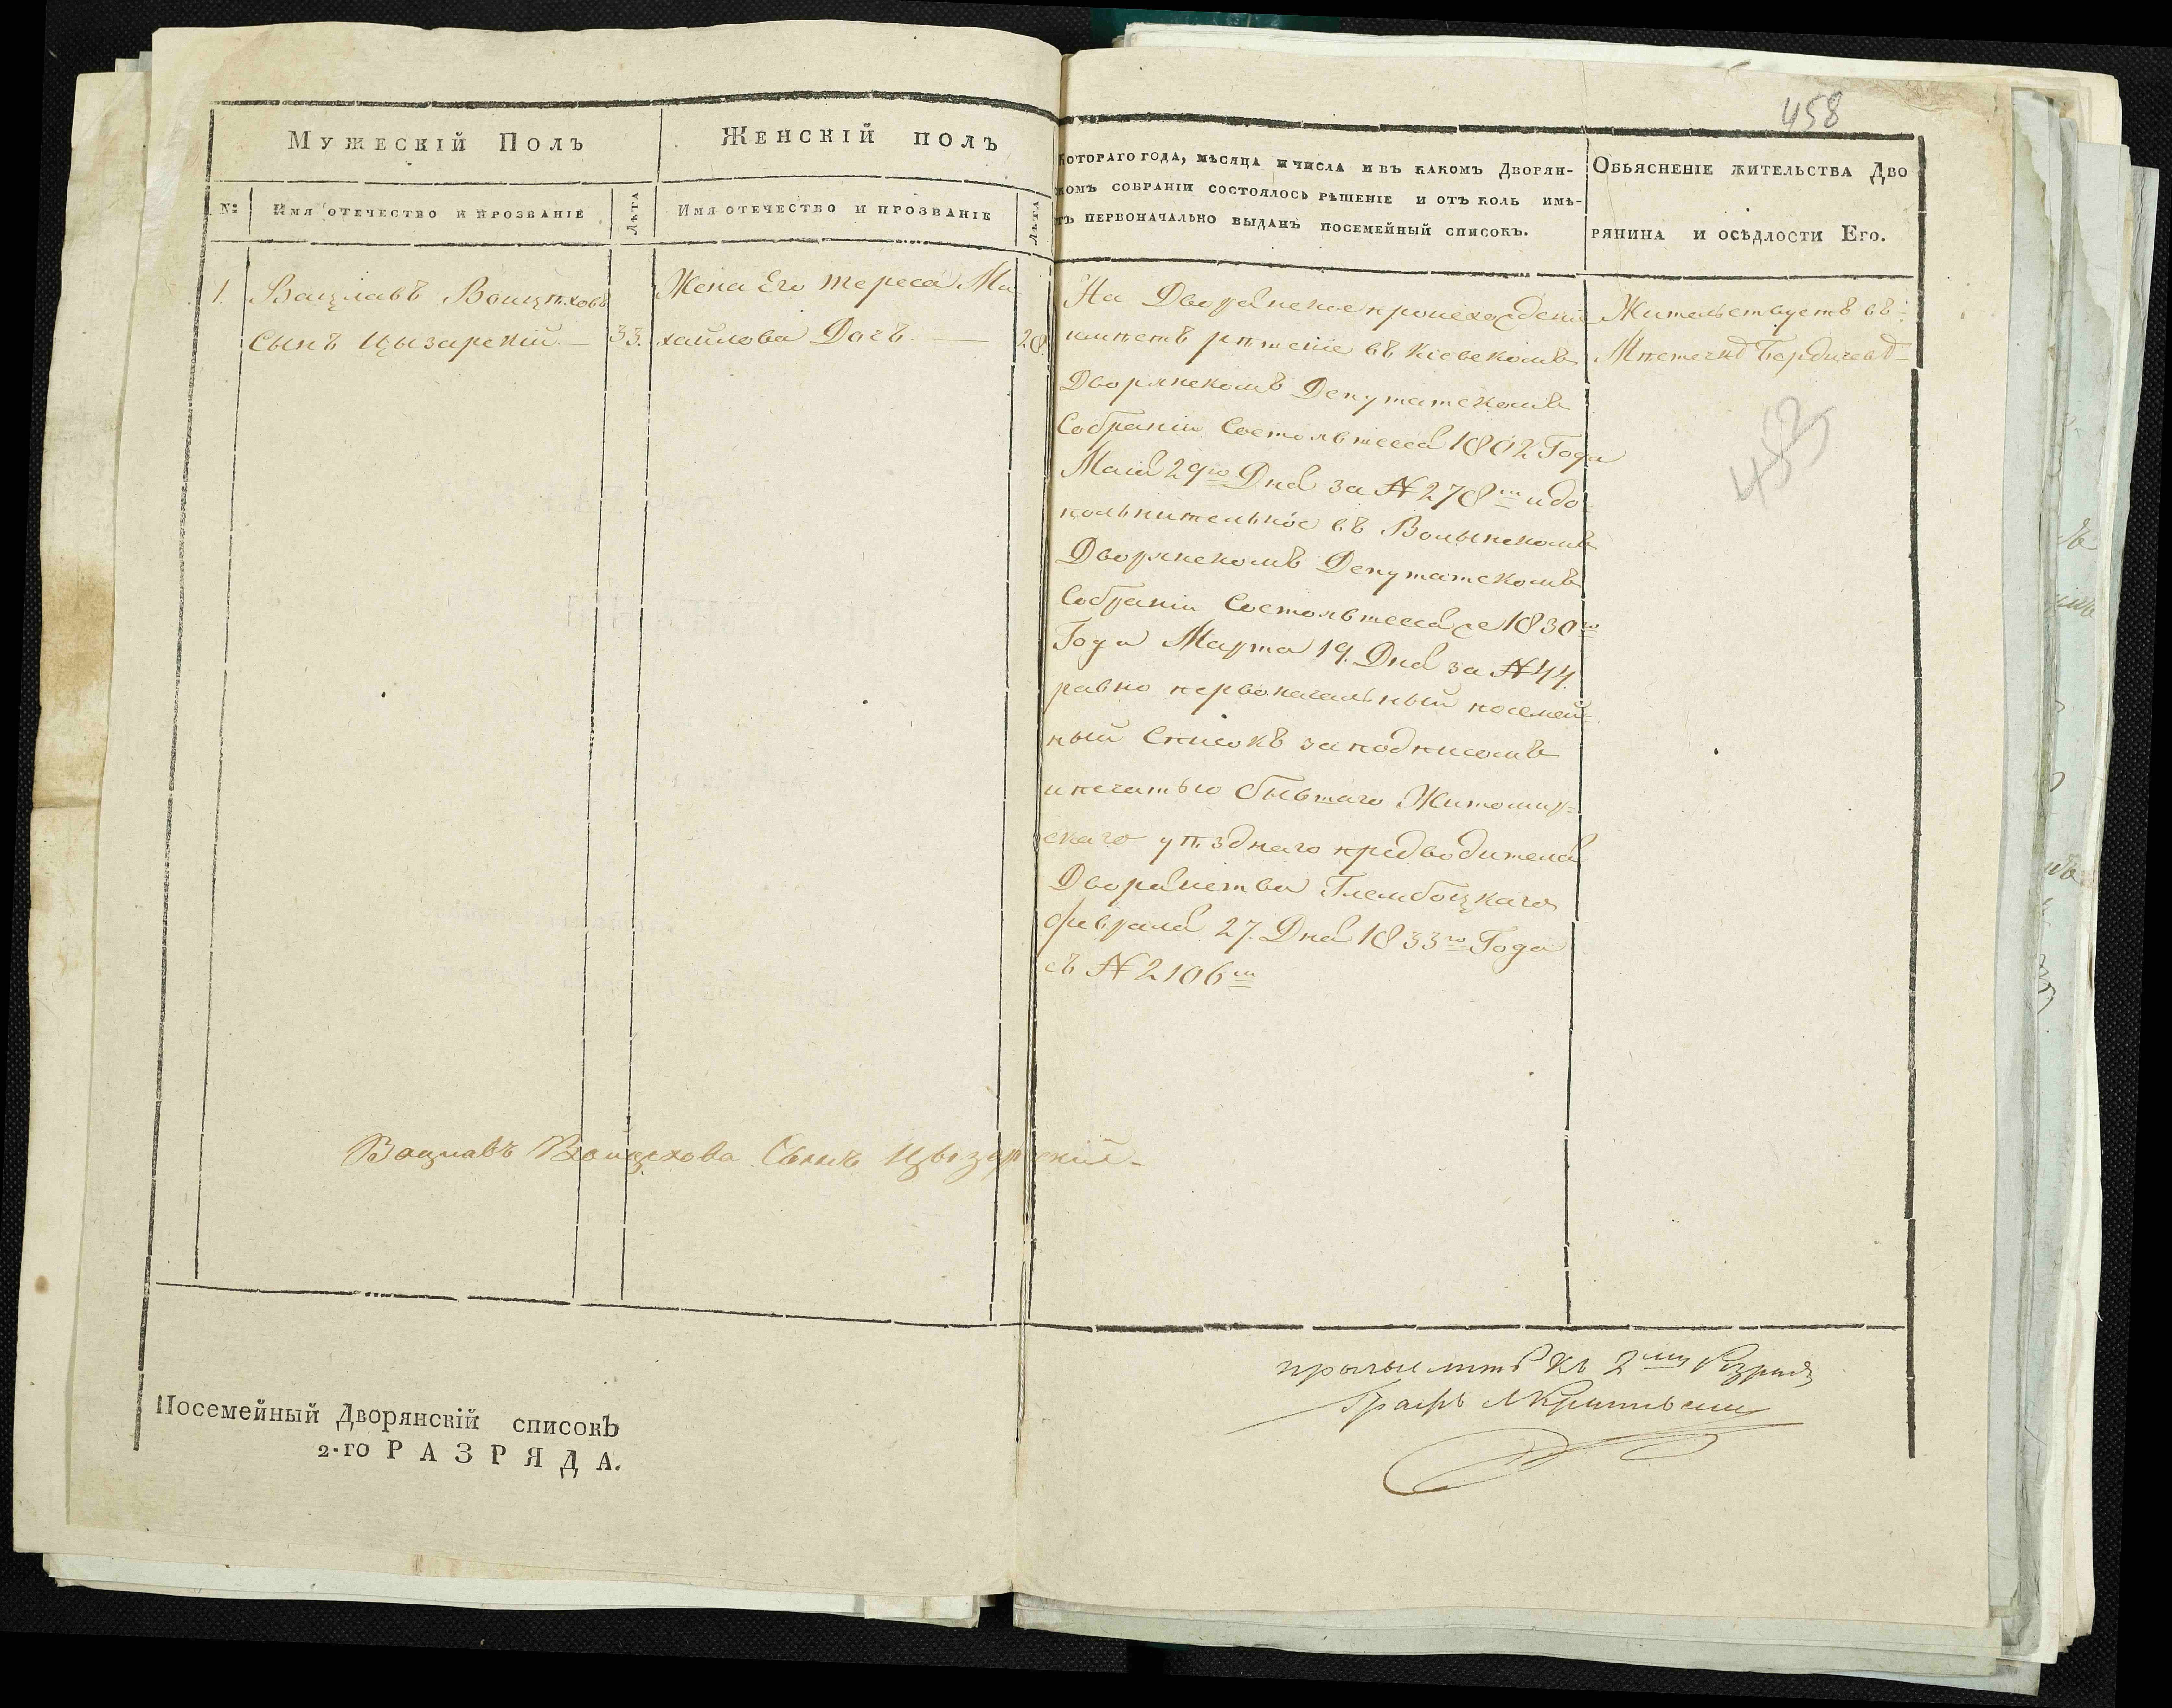 458
Мужескій Полъ
Женскій полъ
Котораго года, мѣсяца и числа и въ какомъ Дворян-
комъ собраніи состоялось рѣшеніе и отъ коль имѣ-
тъ первоначально выданъ посемейный списокъ.
Обьясненіе жительства Дво
рянина и осѣдлости Его.
№:
Имя отечество и прозваніе
Лѣта
Имя отечество и прозваніе
Лѣта
1.
Вацлавъ Воицѣховъ
Сынъ Цызарскій — 33.
Жена Его Тереса Ми
хайлова Дочь — 28.
На Дворянское происхожденіе
имѣетъ рѣшеніе въ Кіевскомъ
Дворянскомъ Депутатскомъ
Собраніи Состоявшееся 1802 Года
Маія 29го Дня за № 278м и до
польнительное въ Волынскомъ
Дворянскомъ Депутатскомъ
Собраніи Состоявшееся 1830го
Года Марта 19. Дня за № 44.
равно первоначальный посемей-
ный Списокъ за подписомъ
и печатью бывшаго Житомир-
скаго уѣзднаго предводителя
Дворянства Глембоцкаго
февраля 27. Дня 1833го Года
съ № 2106м
Жительствуетъ въ
Мѣстечкѣ Бердичевѣ
452
Вацлавъ Воицехова Сынъ Цызарскій
2му
Графъ
Посемейный Дворянскій списокъ
2-го РАЗРЯДА.